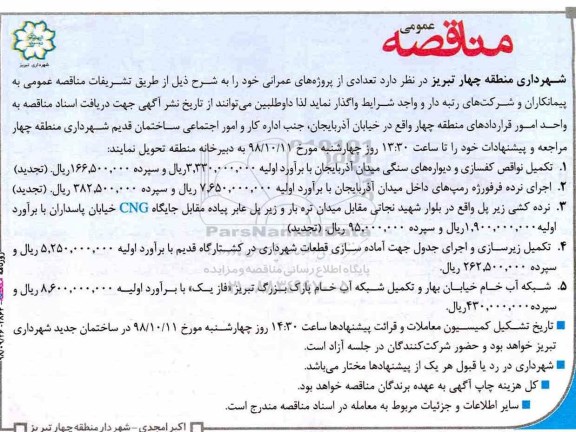 عمومی
مناقصه
شهرداری تبریز
شهرداری منطقه چهار تبریز در نظر دارد تعدادی از پروژه‌های عمرانی خود را به شرح ذیل از طریق تشریفات مناقصه عمومی به
پیمانکاران و شرکت‌های رتبه دار و واجد شرایط واگذار نماید لذا داوطلبین می‌توانند از تاریخ نشر آگهی جهت دریافت اسناد مناقصه به
واحد امور قراردادهای منطقه چهار واقع در خیابان آذربایجان، جنب اداره کار و امور اجتماعی ساختمان قدیم شهرداری منطقه چهار
مراجعه و پیشنهادات خود را تا ساعت ۱۳:۳۰ روز چهارشنبه مورخ ۹۸/۱۰/۱۱ به دبیرخانه منطقه تحویل نمایند:
۱. تکمیل نواقص کفسازی و دیوارهای سنگی میدان آذربایجان با برآورد اولیه ۳,۳۳۰,۰۰۰,۰۰۰ریال و سپرده ۱۶۶,۵۰۰,۰۰۰ریال. (تجدید)
۲. اجرای نرده فرفورژه رمپ‌های داخل میدان آذربایجان با برآورد اولیه ۷,۶۵۰,۰۰۰,۰۰۰ ریال و سپرده ۳۸۲,۵۰۰,۰۰۰ ریال. (تجدید)
۳. نرده کشی زیر پل واقع در بلوار شهید نجاتی مقابل میدان تره بار و زیر پل عابر پیاده مقابل جایگاه CNG خیابان پاسداران با برآورد
اولیه۱,۹۰۰,۰۰۰,۰۰۰ریال و سپرده ۹۵,۰۰۰,۰۰۰ ریال. (تجدید)
۴. تکمیل زیرسازی و اجرای جدول جهت آماده سازی قطعات شهرداری در کشتارگاه قدیم با برآورد اولیه ۵,۲۵۰,۰۰۰,۰۰۰ ریال و
سپرده ۲۶۲,۵۰۰,۰۰۰ ریال.
۵. شبکه آب خام خیابان بهار و تکمیل شبکه آب خام پارک بزرگ تبریز «فاز یک» با برآورد اولیه ۸,۶۰۰,۰۰۰,۰۰۰ ریال و
سپرده۴۳۰,۰۰۰,۰۰۰ریال.
■ تاریخ تشکیل کمیسیون معاملات و قرائت پیشنهادها ساعت ۱۴:۳۰ روز چهارشنبه مورخ ۹۸/۱۰/۱۱ در ساختمان جدید شهرداری
تبریز خواهد بود و حضور شرکت‌کنندگان در جلسه آزاد است.
■ شهرداری در رد یا قبول هر یک از پیشنهادها مختار می‌باشد.
■ کل هزینه چاپ آگهی به عهده برندگان مناقصه خواهد بود.
■ سایر اطلاعات و جزئیات مربوط به معامله در اسناد مناقصه مندرج است.
اکبر امجدی - شهردار منطقه چهار تبریز
ParsNamadData
پایگاه اطلاع رسانی مناقصه و مزایده